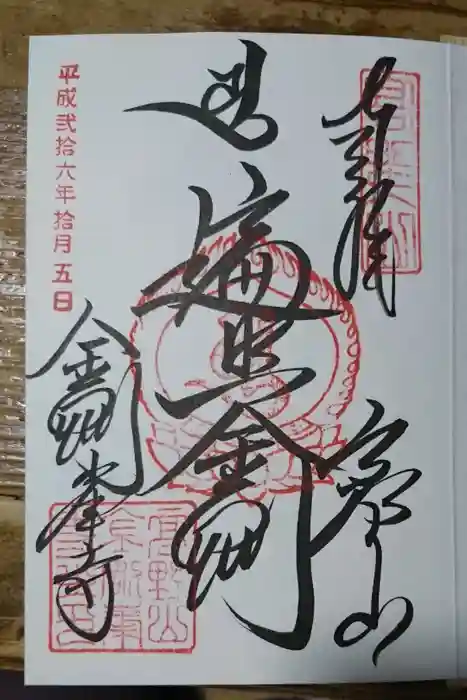 奉拝
高野山
遍照金剛
金剛峯寺
平成弐拾六年拾月五日
高野山